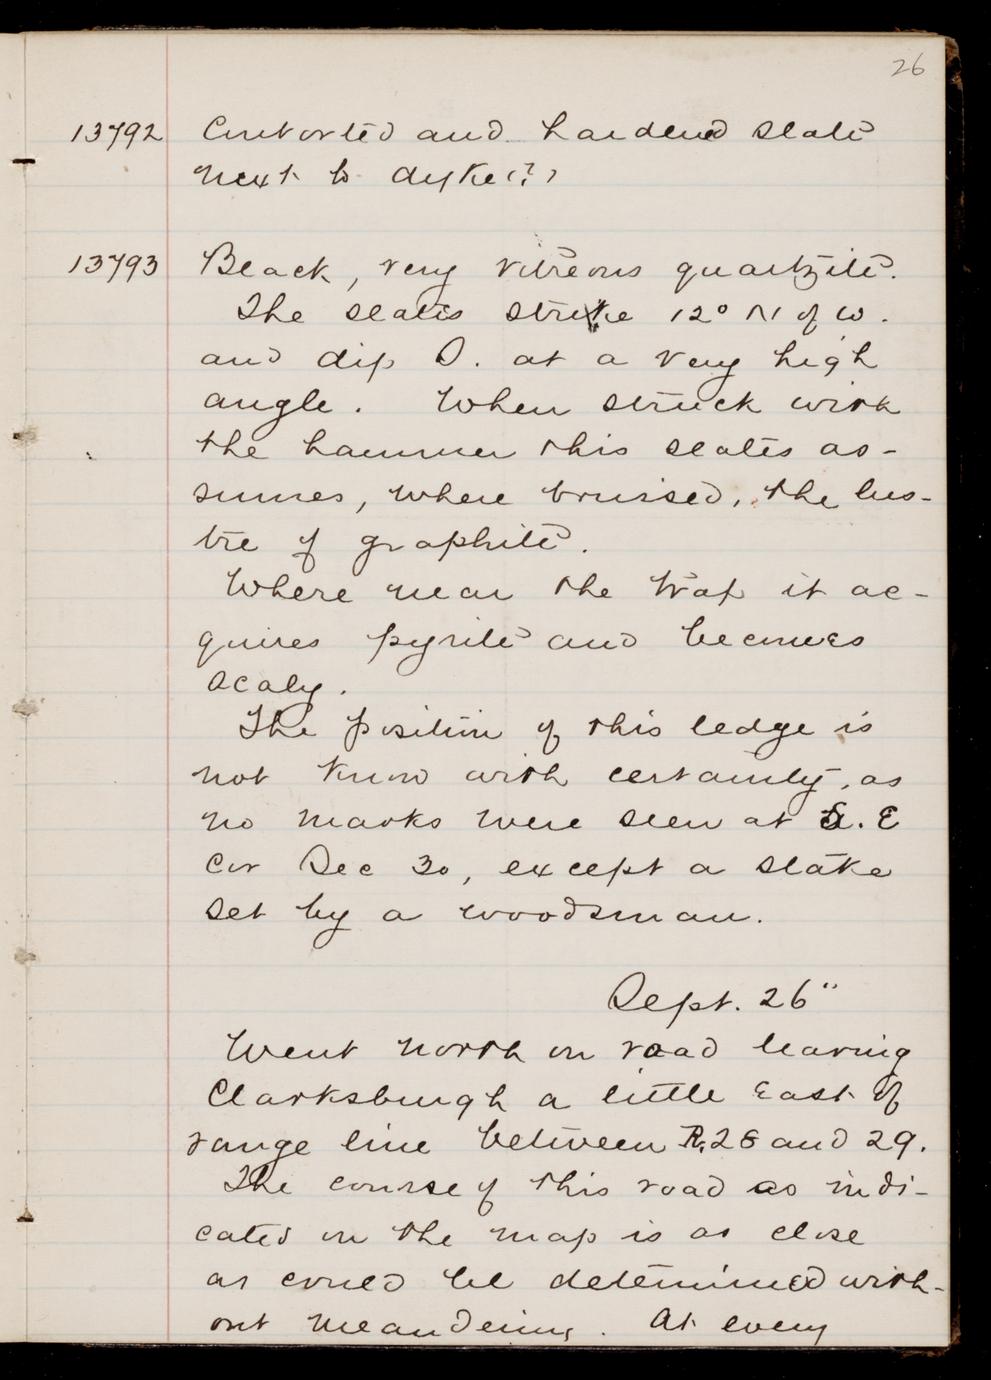 26
13792 Contorted and hardened slate
next to dyke (?)
13793 Black, very vitreous quartzite.
The slates strike 12° N of W.
and dip S. at a very high
angle. When struck with
the hammer this slates as-
sumes, where bruised, the lus-
tre of graphite.
Where near the trap it ac-
quires pyrite and becomes
scaly.
The position of this ledge is
not know with certainty, as
no marks were seen at S. E
Cor Sec 30, except a stake
set by a woodsman.
Sept. 26"
Went north on road leaving
Clarksburgh a little East of
range line between R. 28 and 29.
The course of this road as indi-
cated on the map is as close
as could be determined with-
out meandering. At every